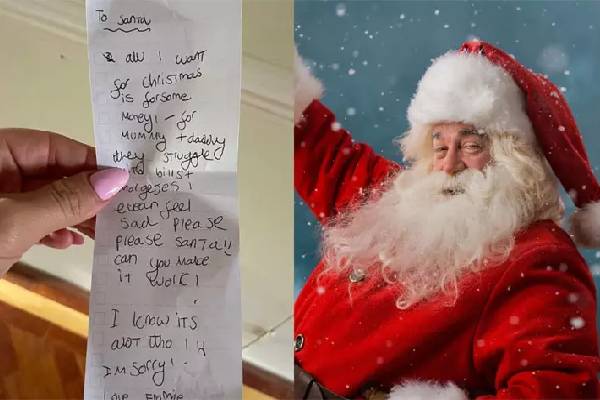 To santa
all I want
for christmas
is forsome
Money! - for
Mummy + daddy
they struggle
with bills +
morgeses!
even feel
sad please
please santa!!
can you make
it work!
I know its
alot tho!
I'm sorry! -